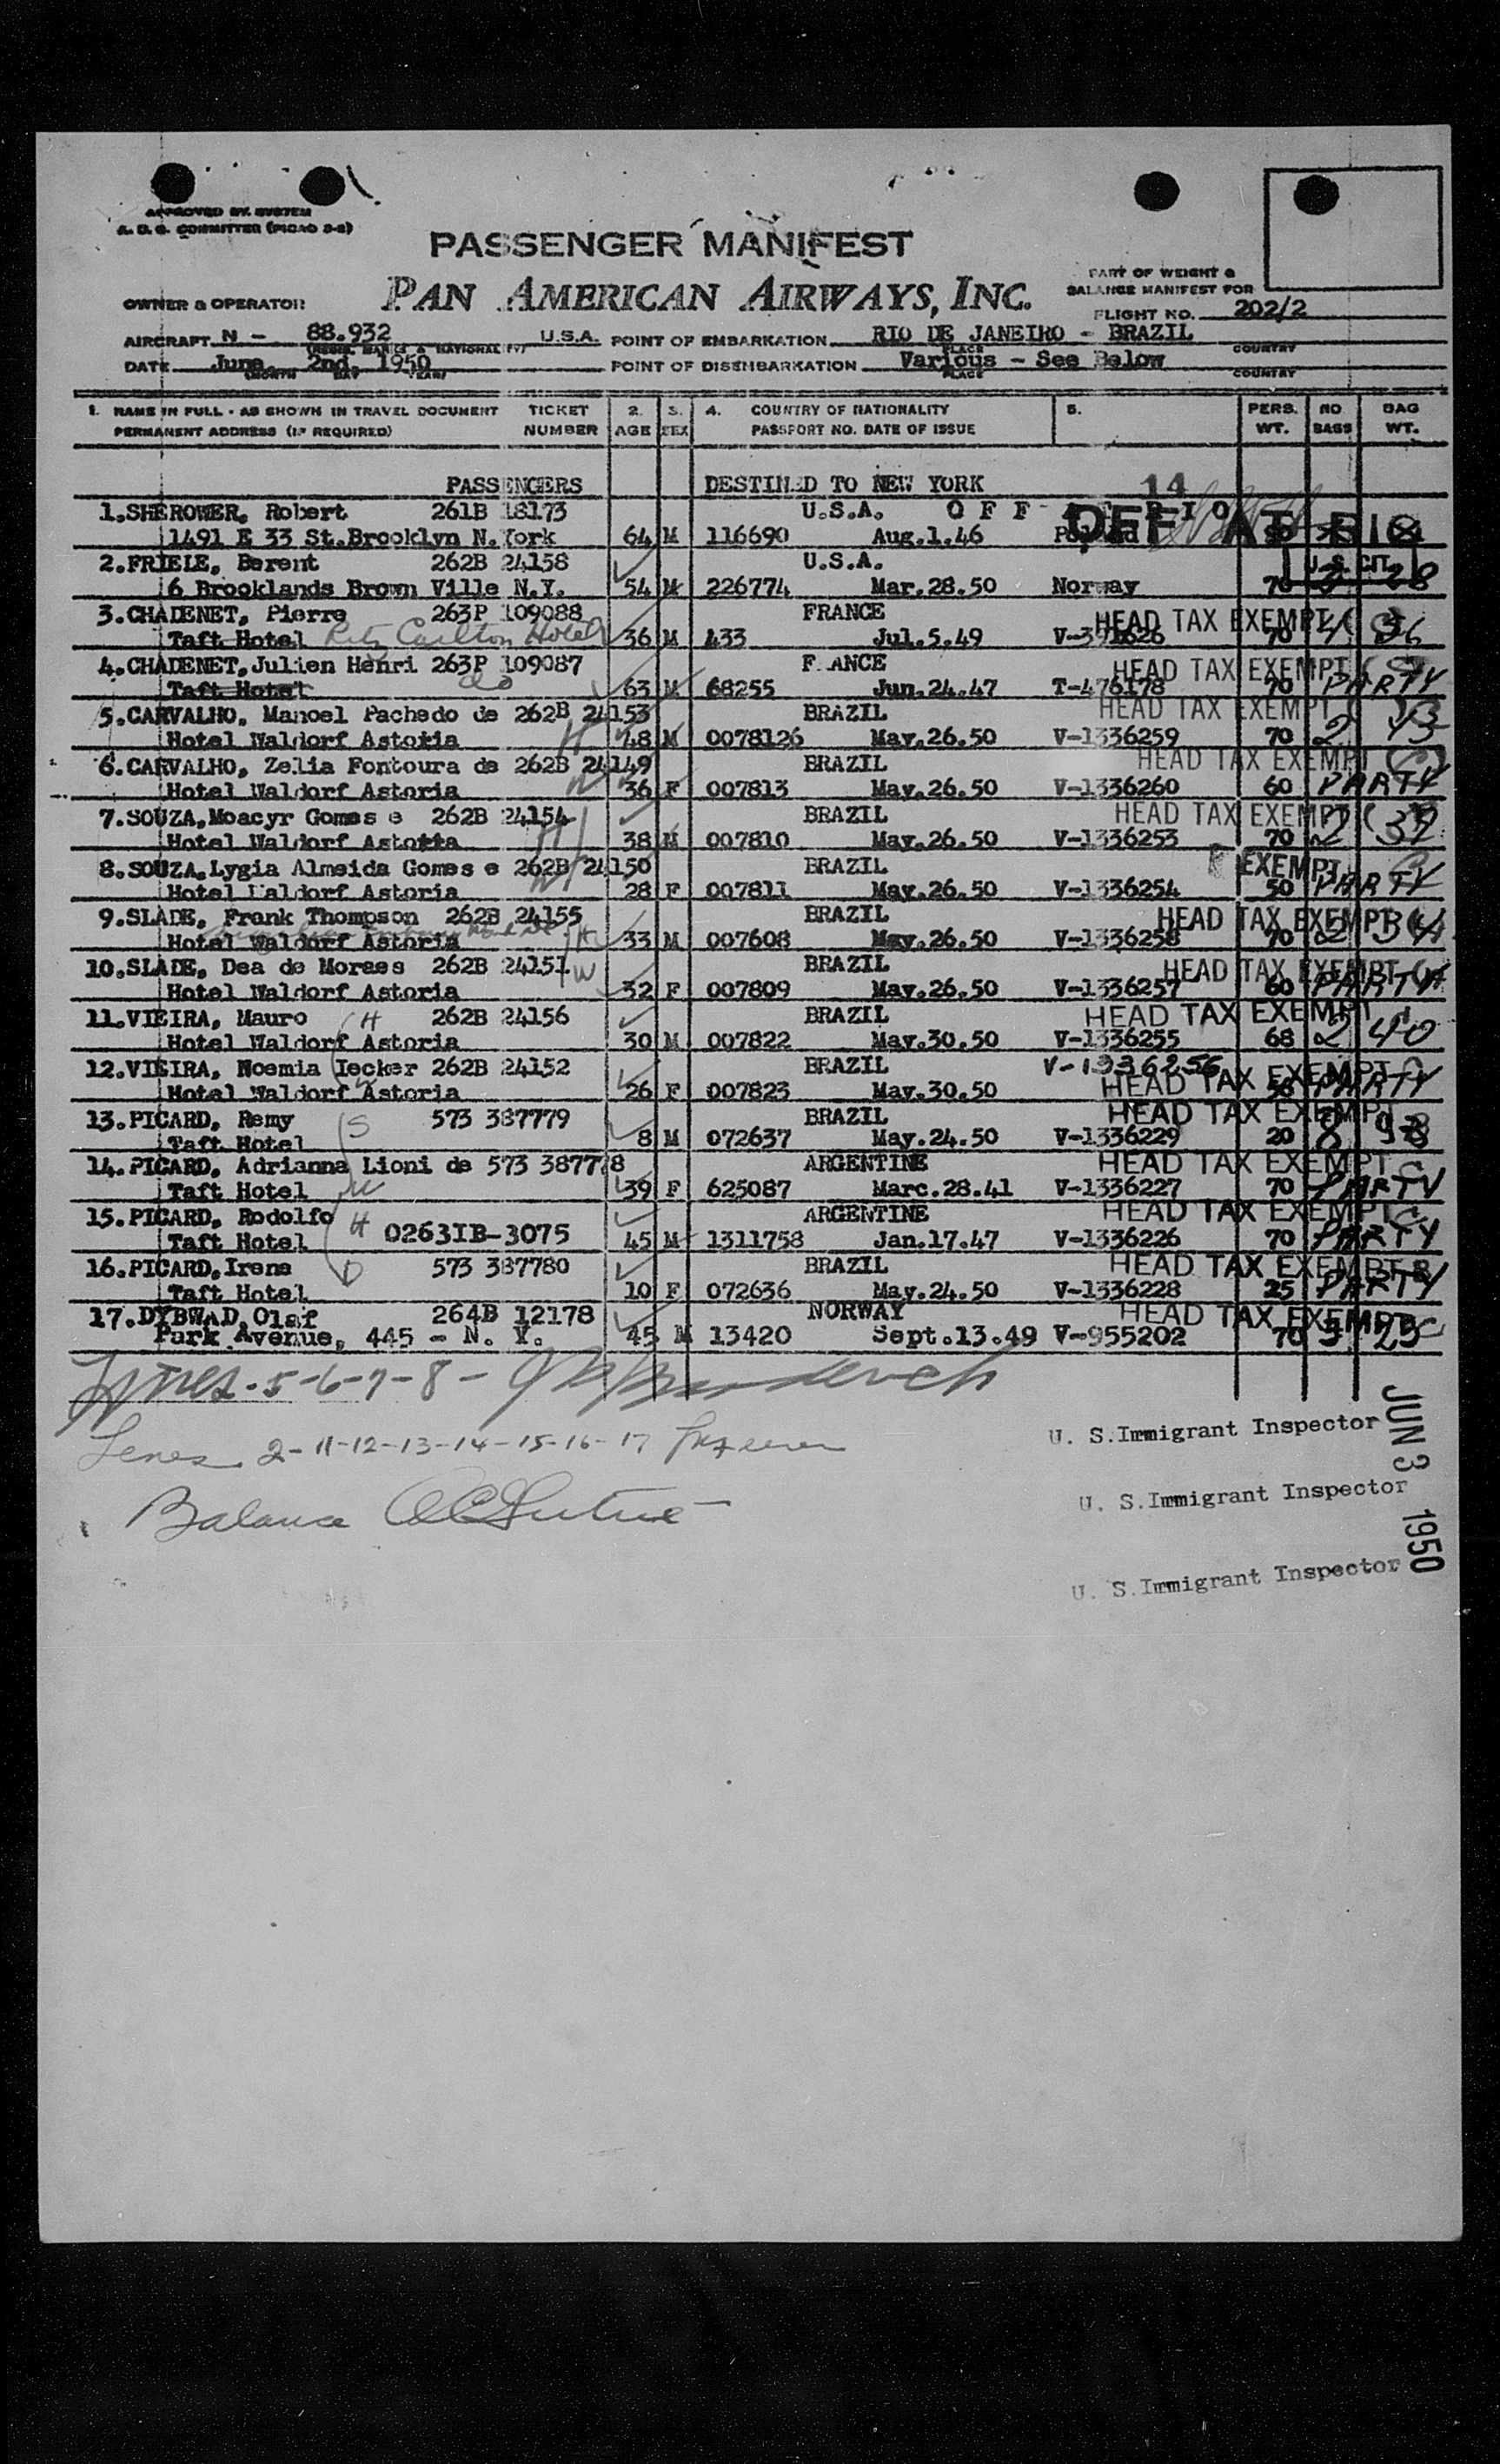 APPROVED BY SYSTEM
A. D. G. COMMITTEE (PICAO 2-2)
PASSENGER MANIFEST
PAN AMERICAN AIRWAYS, INC.
PART OF WEIGHT &
BALANCE MANIFEST FOR
OWNER & OPERATOR
FLIGHT NO. 202/2
AIRCRAFT N - 88.932 U.S.A. POINT OF EMBARKATION RIO DE JANEIRO - BRAZIL
(REGIS. MARKS & NATIONALITY) PLACE COUNTRY
DATE June, 2nd, 1950 POINT OF DISEMBARKATION Various - See Below
MONTH DAY YEAR PLACE COUNTRY
1. NAME IN FULL - AS SHOWN IN TRAVEL DOCUMENT TICKET 2. 3. 4. COUNTRY OF NATIONALITY 5. PERS. NO BAG
PERMANENT ADDRESS (IF REQUIRED) NUMBER AGE SEX PASSPORT NO. DATE OF ISSUE WT. BAGS WT.
PASSENGERS DESTINED TO NEW YORK 14
1.SHEROWER, Robert 261B 18173 U.S.A. OFF
1491 E 33 St.Brooklyn N.York 64 M 116690 Aug.1.46 OFF AT RIO
2.FRIELE, Berent 262B 24158 U.S.A. U.S. CIT.
6 Brooklands Brown Ville N.Y. 54 M 226774 Mar.28.50 Norway 70 28
3.CHADENET, Pierre 263P 109088 FRANCE HEAD TAX EXEMPT
Taft Hotel Ritz Carlton Hotel 36 M 433 Jul.5.49 V-391626 70
4.CHADENET,Julien Henri 263P 109087 F ANCE HEAD TAX EXEMPT
Taft Hotel do 63 M 68255 Jun.24.47 T-476178 70 PARTY
5.CARVALHO, Manoel Pachedo de 262B 24153 BRAZIL HEAD TAX EXEMPT
Hotel Waldorf Astoria H 48 M 0078126 May.26.50 V-1336259 70 2 43
6.CARVALHO, Zelia Fontoura de 262B 24149 BRAZIL HEAD TAX EXEMPT
Hotel Waldorf Astoria W 36 F 007813 May.26.50 V-1336260 60 PARTY
7.SOUZA,Moacyr Gomes e 262B 24154 BRAZIL HEAD TAX EXEMPT
Hotel Waldorf Astoria H 38 M 007810 May.26.50 V-1336253 70 2
8.SOUZA,Lygia Almeida Gomes e 262B 24150 BRAZIL EXEMPT
Hotel Waldorf Astoria W 28 F 007811 May.26.50 V-1336254 50 PARTY
9.SLADE, Frank Thompson 262B 24155 BRAZIL HEAD TAX EXEMPT
Hotel Waldorf Astoria H 33 M 007608 May.26.50 V-1336258 70 2 34
10.SLADE, Dea de Moraes 262B 24151 W BRAZIL HEAD TAX EXEMPT
Hotel Waldorf Astoria 32 F 007809 May.26.50 V-1336257 60 PARTY
11.VIEIRA, Mauro H 262B 24156 BRAZIL HEAD TAX EXEMPT
Hotel Waldorf Astoria 30 M 007822 May.30.50 V-1336255 68 2 40
12.VIEIRA, Noemia Iecker 262B 24152 BRAZIL V-1336256 HEAD TAX EXEMPT
Hotel Waldorf Astoria W 26 F 007823 May.30.50 PARTY
13.PICARD, Remy S 573 387779 BRAZIL HEAD TAX EXEMPT
Taft Hotel 8 M 072637 May.24.50 V-1336229 20 8 98
14.PICARD, Adrianna Lioni de 573 387778 ARGENTINE HEAD TAX EXEMPT
Taft Hotel W 39 F 625087 Marc.28.41 V-1336227 70 PARTY
15.PICARD, Rodolfo H 0263IB-3075 ARGENTINE HEAD TAX EXEMPT
Taft Hotel 45 M 1311758 Jan.17.47 V-1336226 70 PARTY
16.PICARD,Irene D 573 387780 BRAZIL HEAD TAX EXEMPT
Taft Hotel 10 F 072636 May.24.50 V-1336228 25 PARTY
17.DYBWAD,Olaf 264B 12178 NORWAY HEAD TAX EXEMPT
Park Avenue, 445 - N. Y. 45 M 13420 Sept.13.49 V-955202 70 3 25
Lines 5-6-7-8-
U. S.Immigrant Inspector
Lines 2-11-12-13-14-15-16-17
U. S.Immigrant Inspector
Balance
U. S.Immigrant Inspector
JUN 3 1950